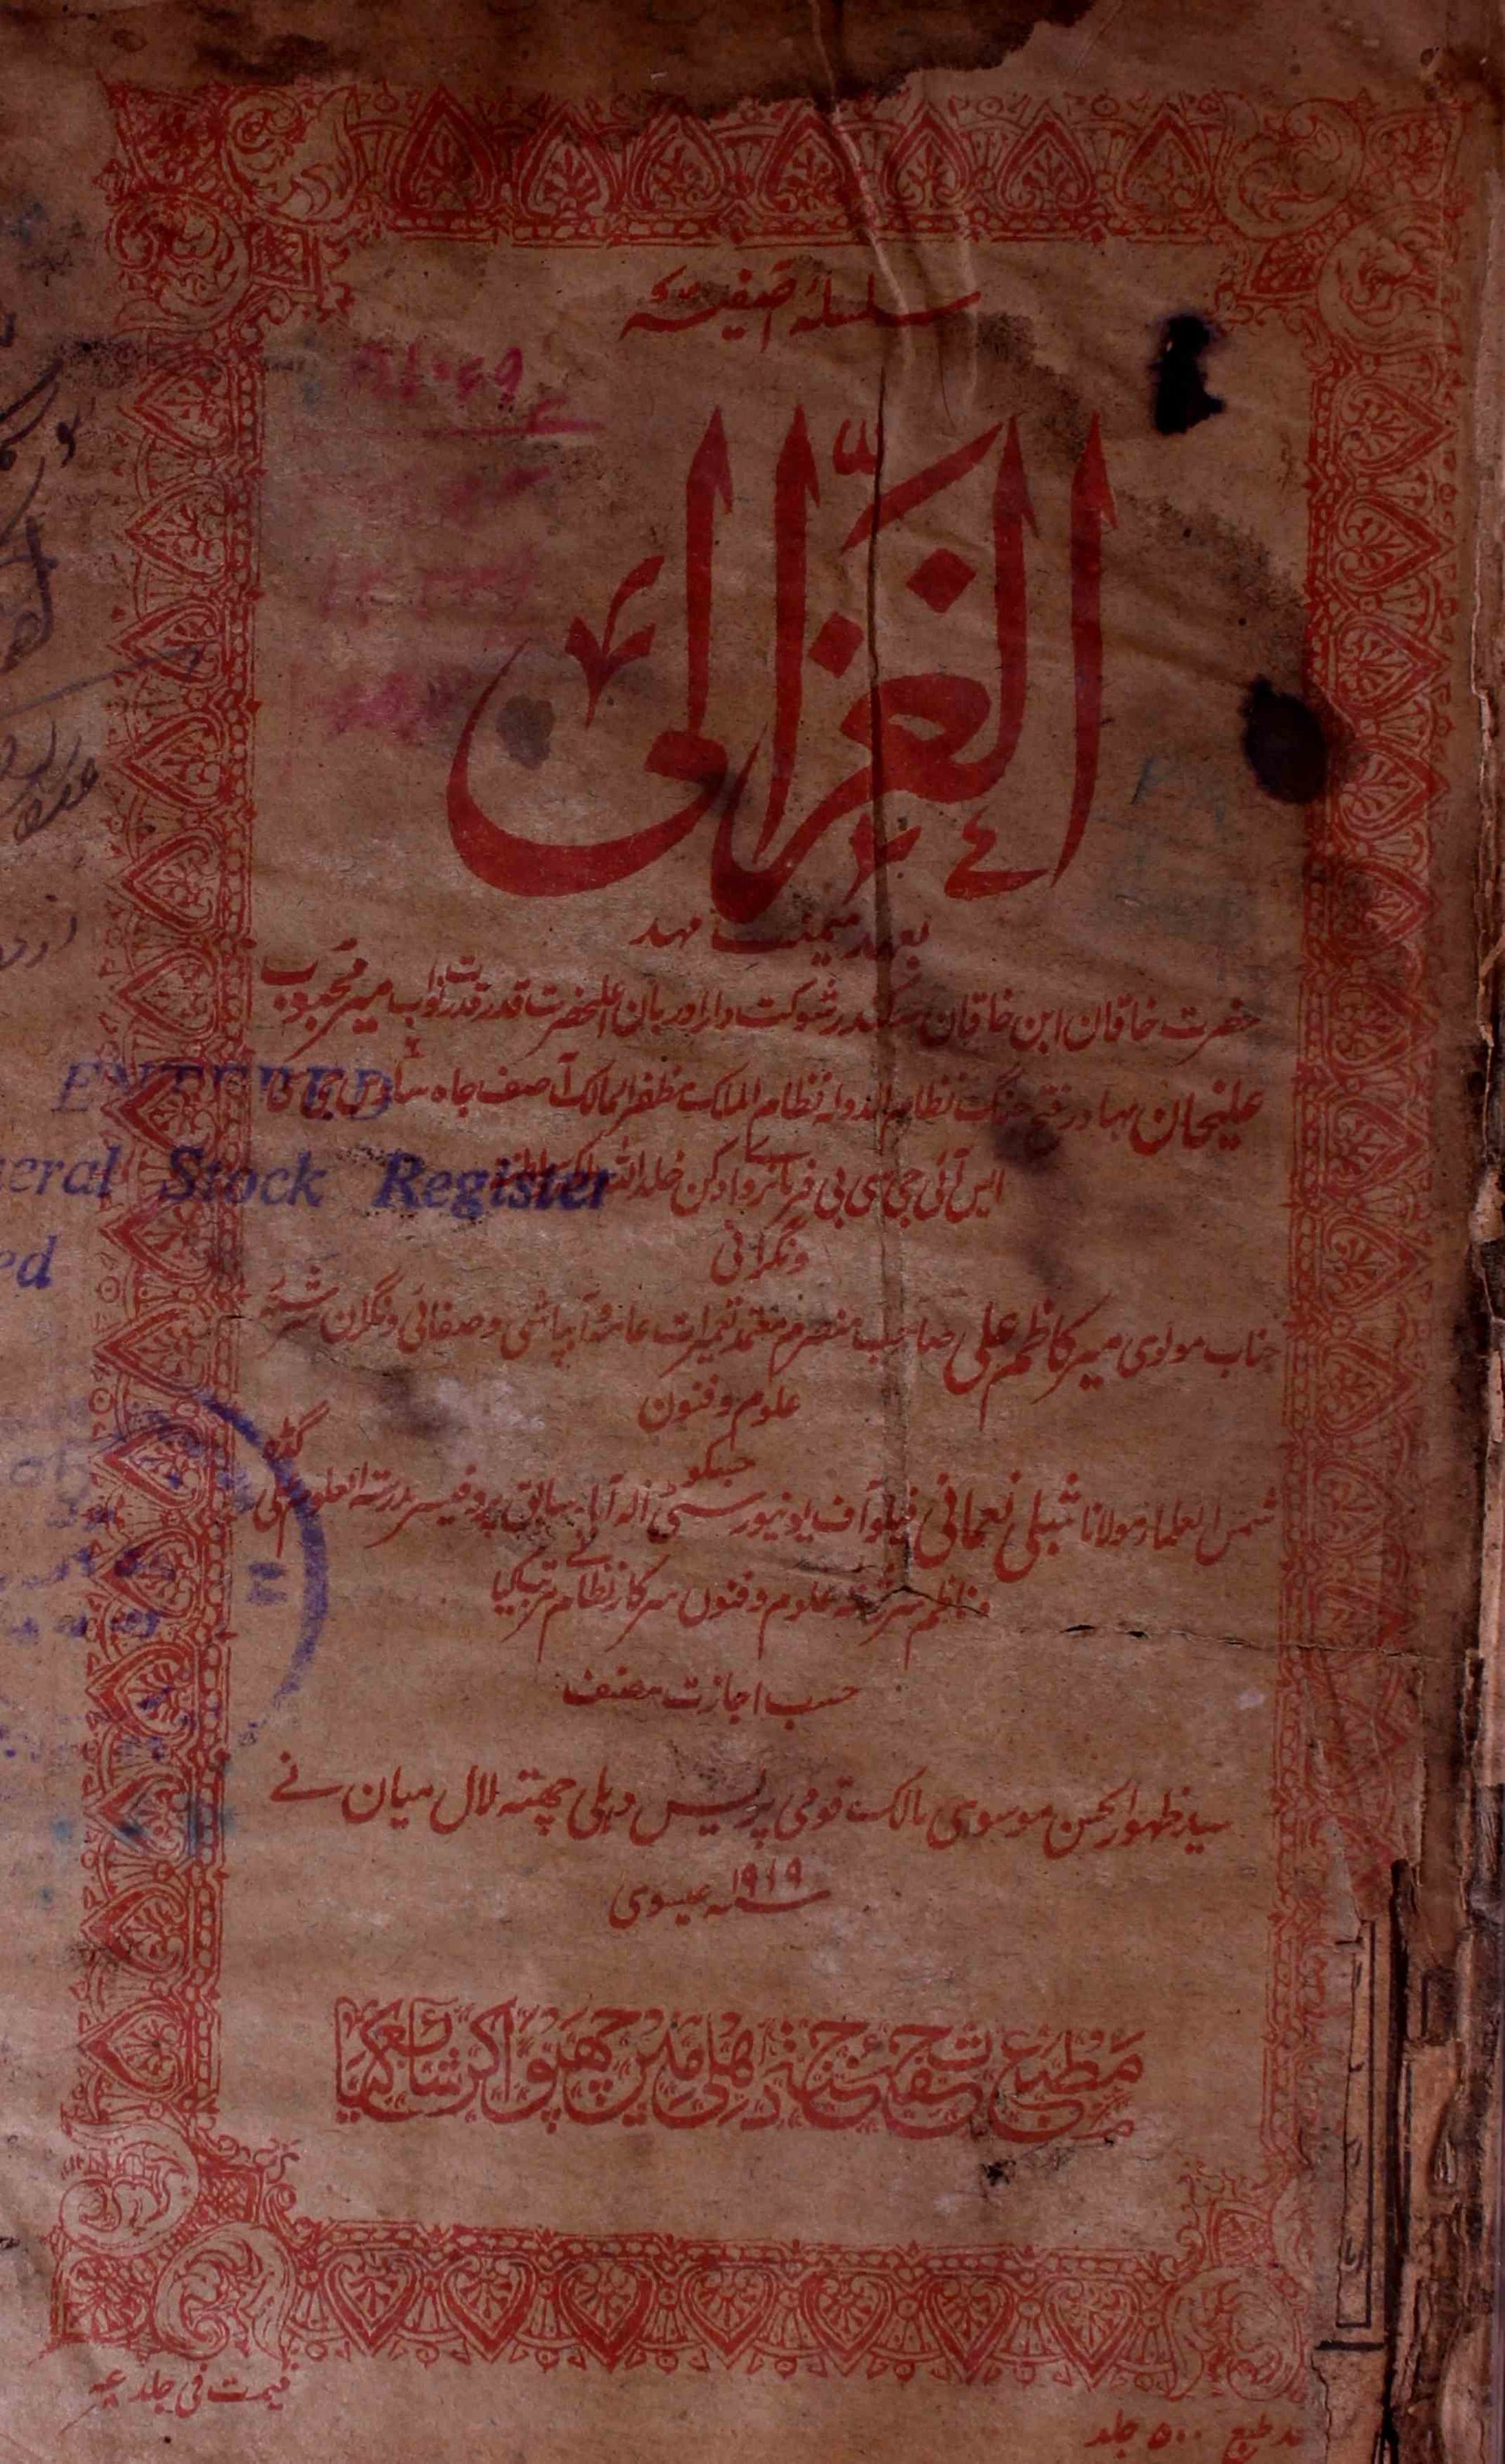 سلسلۂ آصفیہ
الغزالی
بعہد میمنت مہد
حضرت خاقان ابن خاقان سکندر شوکت دارا دربان اعلیحضرت قدر قدرت نواب میر محبوب
علیخان بہادر فتح جنگ نظام الدولہ نظام الملک مظفر الممالک آصف جاہ سادس جی
ایس آئی جی سی بی فرمانروائے دکن خلد اللہ ملکہ
ونگرانی
جناب مولوی میر کاظم علی صاحب منصرم معتمد تعمیرات عامہ و آبپاشی و صفائی و نگران سررشتہ
علوم و فنون
جسکو
شمس العلماء مولانا شبلی نعمانی فیلو آف یونیورسٹی الہ آباد سابق پروفیسر مدرستہ العلوم علی گڈہ
وناظم سررشتہ علوم و فنون سرکار نظام نے ترتیب کیا
حسب اجازت مصنف
سید ظہور الحسن موسوی مالک قومی پریس دہلی چھتہ لال میان نے
سنہ ۱۹۱۹ عیسوی
مطبع دہلی مین چھپواکر شایع کیا
قیمت فی جلد
طبع ۵۰۰ جلد
ENTERED
Stock Register